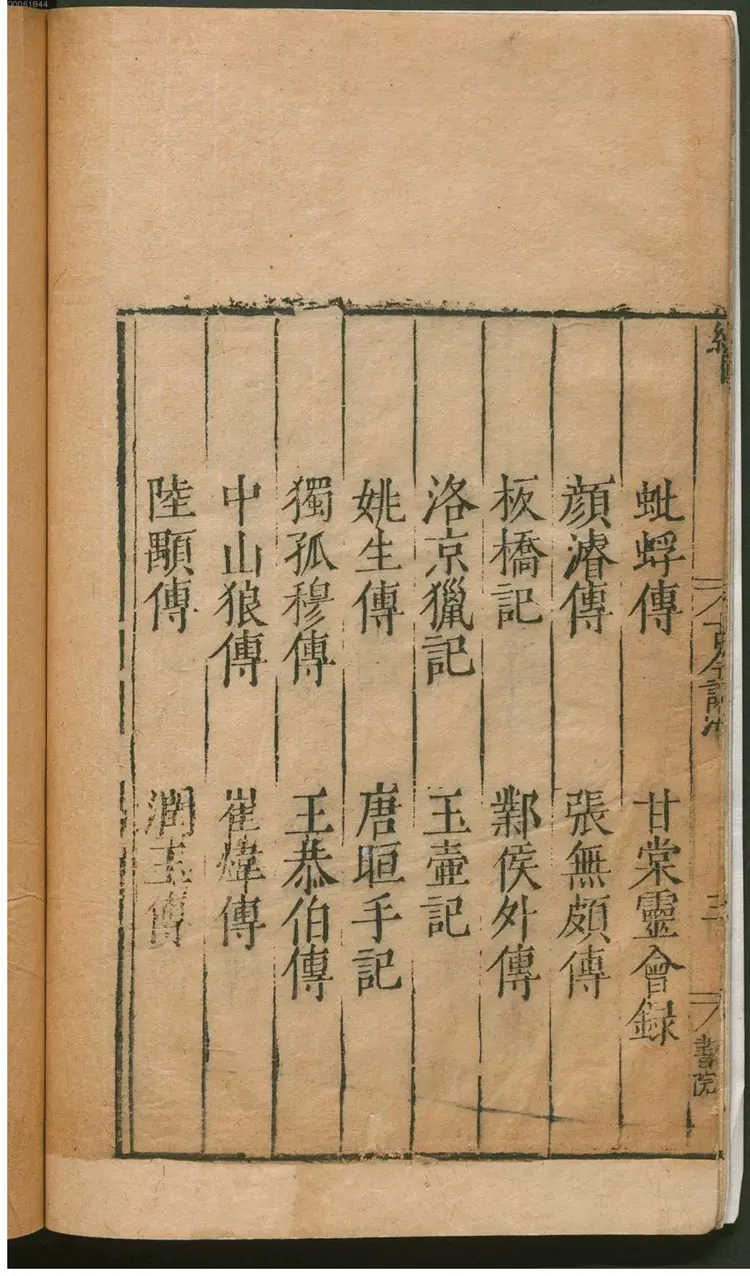 古今說海
三
書院
蚍蜉傳 甘棠靈會録
顏濬傳 張無頗傳
板橋記 鄴侯外傳
洛京獵記 玉壺記
姚生傳 唐晅手記
獨孤穆傳 王恭伯傳
中山狼傳 崔煒傳
陸顒傳 潤玉傳